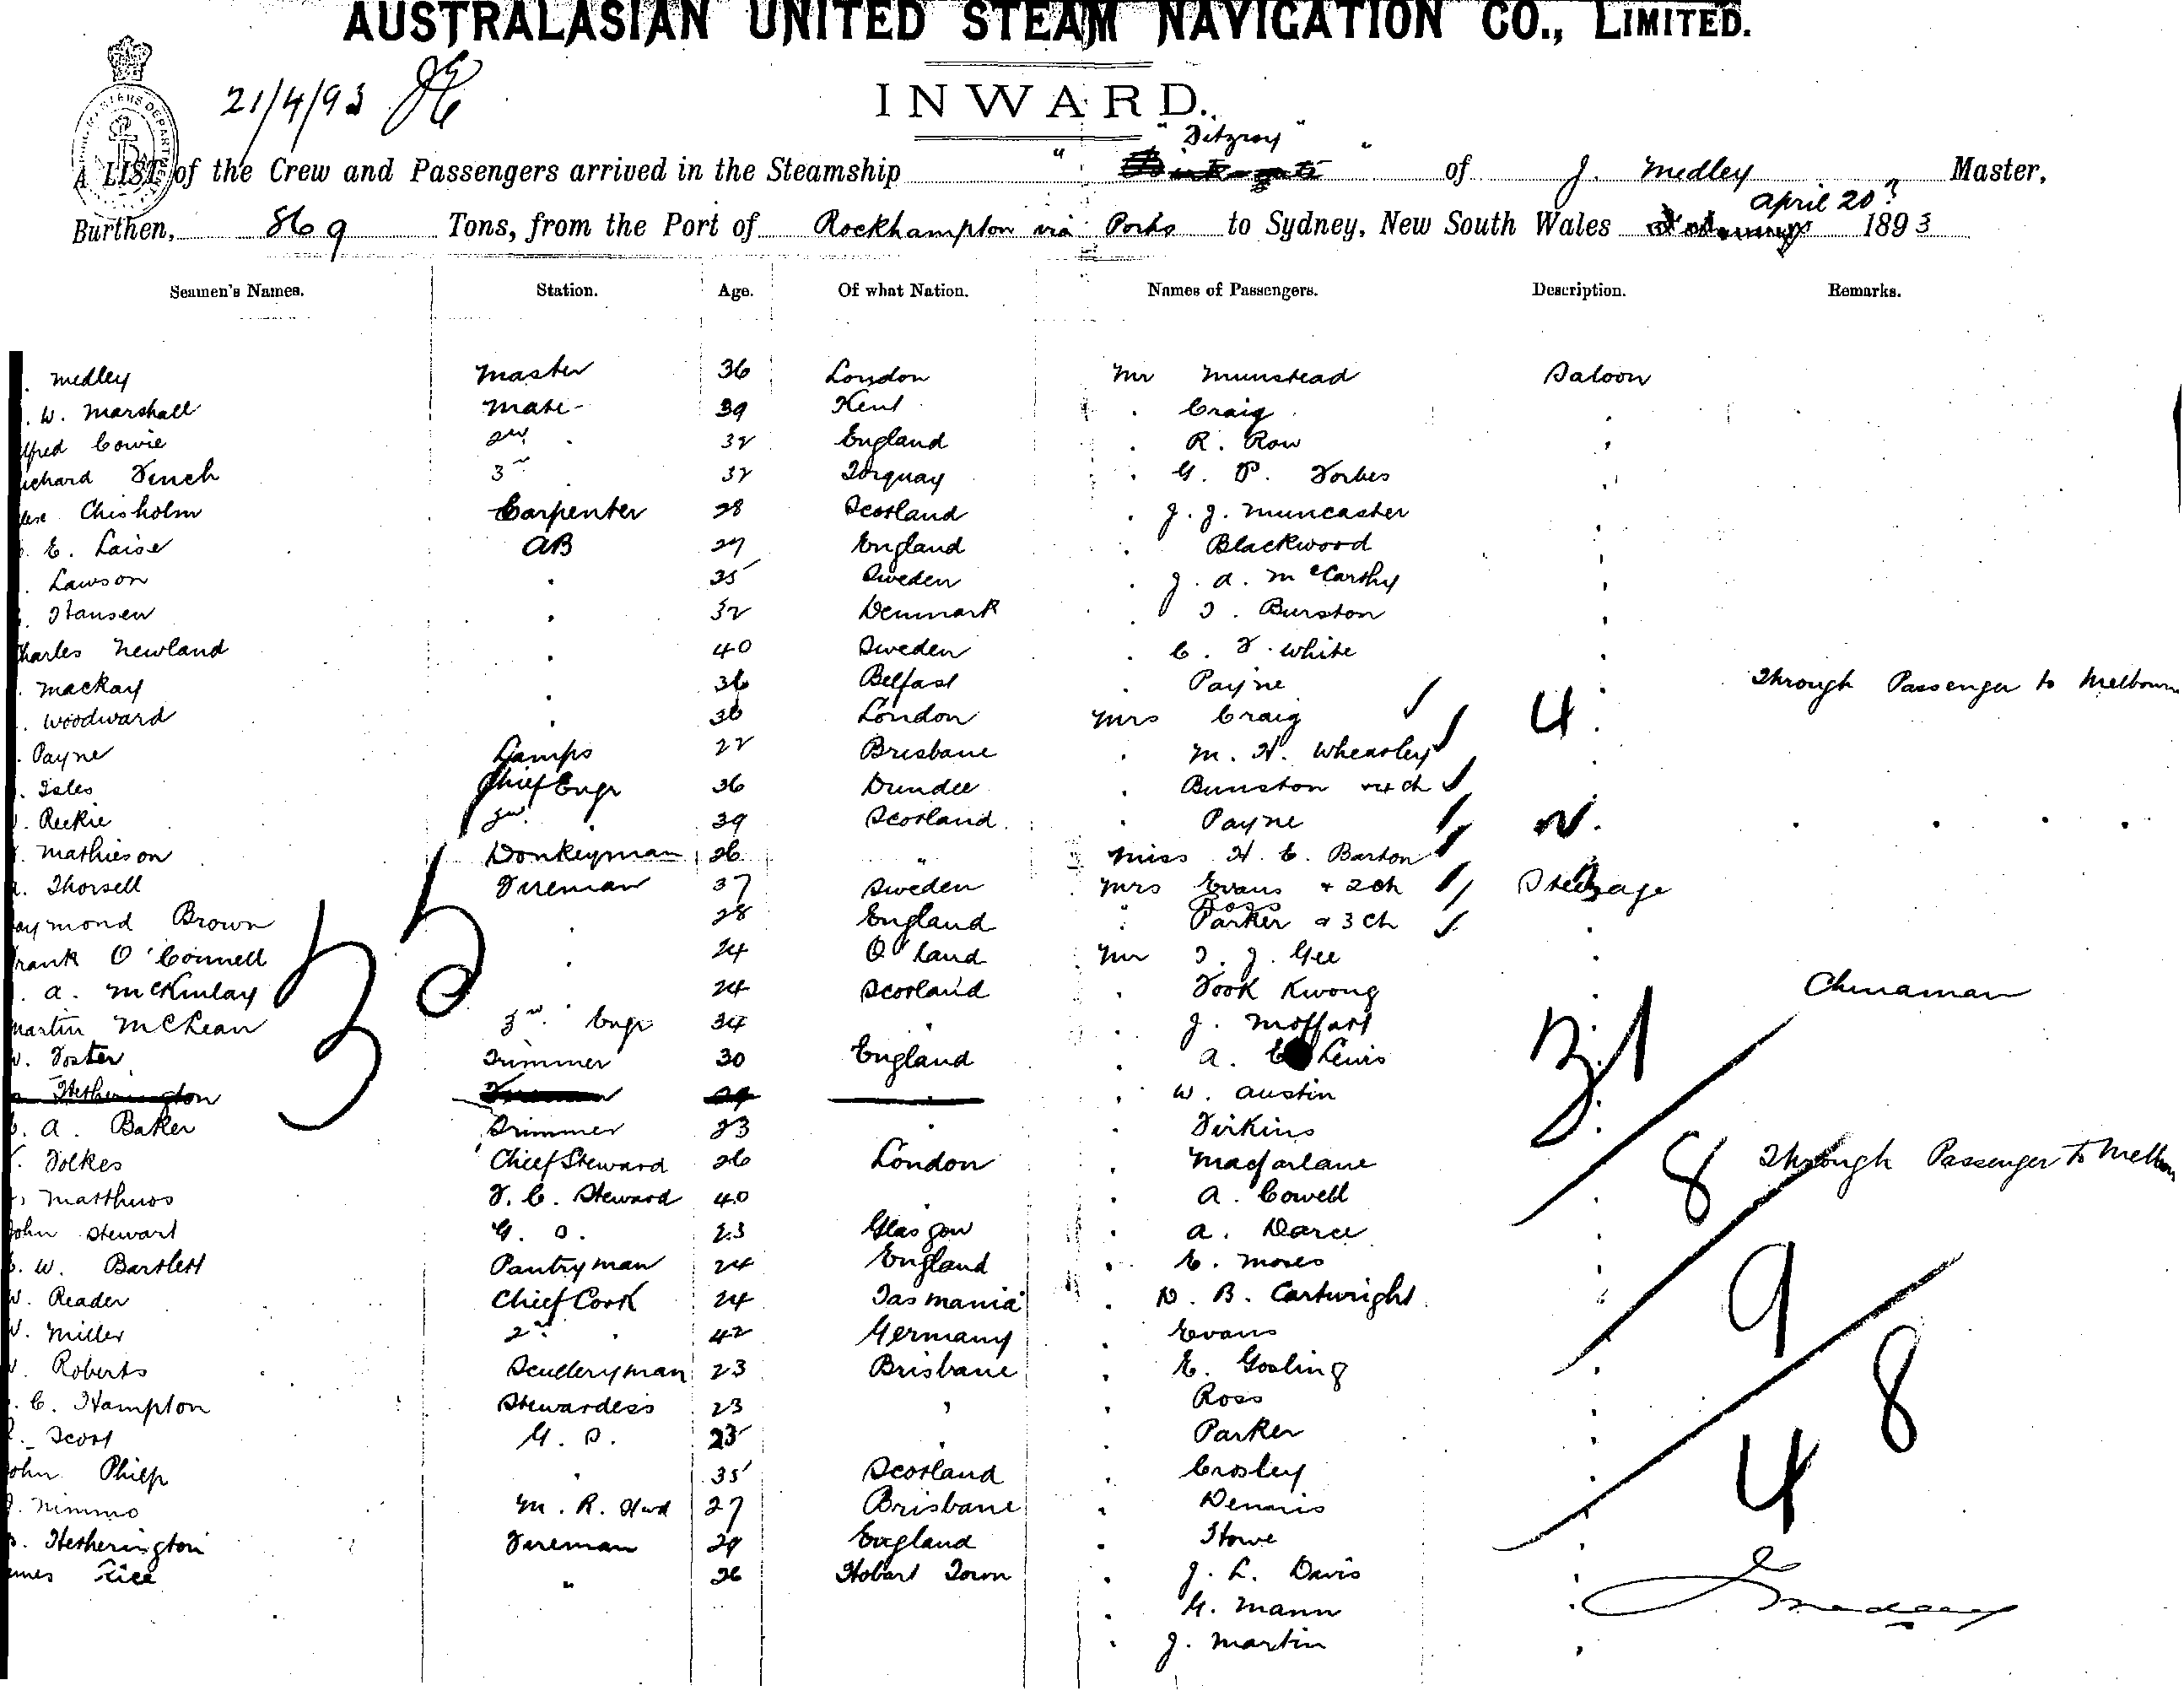 AUSTRALASIAN UNITED STEAM NAVIGATION CO., LIMITED.
21/4/93
INWARD.
"Fitzroy"
A LIST of the Crew and Passengers arrived in the Steamship " " of J. Medley Master,
April 20
Burthen, 869 Tons, from the Port of Rockhampton via Ports to Sydney, New South Wales 1893
Seamen's Names. Station. Age. Of what Nation. Names of Passengers. Description. Remarks.
Medley Master 36 London Mr Munstead Saloon
W. Marshall Mate 39 Kent " Craig "
lfred Cowie 2nd " 32 England " R. Row "
ichard Finch 3rd " 32 Torquay " G. P. Forbes "
Chisholm Carpenter 28 Scotland " J. J. Muncaster "
E. Laise AB 27 England " Blackwood "
Lawson " 35 Sweden " J. A. McCarthy "
Hansen " 32 Denmark " T. Burston "
harles Newland " 40 Sweden " C. F. White "
Mackay " 36 Belfast " Payne " Through Passenger to Melbourn
Woodward " 36 London Mrs Craig 4 "
Payne Lamps 22 Brisbane " M. H. Wheatley
Isles Chief Engr 36 Dundee " Burston ch
Reekie 2nd " 39 Scotland " Payne " " " "
Mathieson Donkeyman 26 " Miss H. E. Barton
Thorsell Fireman 37 Sweden Mrs Evans + 2 ch Steerage
Ross
aymond Brown " 28 England " Parker & 3 ch
rank O'Connell " 24 Q'land Mr T. J. Gee "
A. McKinlay " 24 Scotland " Fook Kwong " Chinaman
Martin McLean 3rd Engr 34 " " J. Moffatt "
W. Foster Trimmer 30 England " A. Lewis "
Hetherington 29 " " W. Austin "
A. Baker Trimmer 23 " " Firkins "
Folkes Chief Steward 26 London " Macfarlane 8 Through Passenger to Melbou
Matthews F. C. Steward 40 " " A. Cowell "
ohn Stewart G. S. 23 Glasgow " A. Darce "
W. Bartlett Pantryman 24 England " E. Moses " 9
W. Reader Chief Cook 24 Tasmania " D. B. Cartwright "
W. Miller 2nd " 42 Germany " Evans "
Roberts Sculleryman 23 Brisbane " E. Gosling " 8
C. Hampton Stewardess 23 " " Ross "
Scott G. S. 23 " " Parker " 4
ohn Philp " 35 Scotland " Crosley "
Nimmo M. R. Stwd 27 Brisbane " Dennis "
Hetherington Fireman 29 England " Howe "
ames Rice " 26 Hobart Town " J. L. Davis "
" G. Mann "
" J. Martin "
35